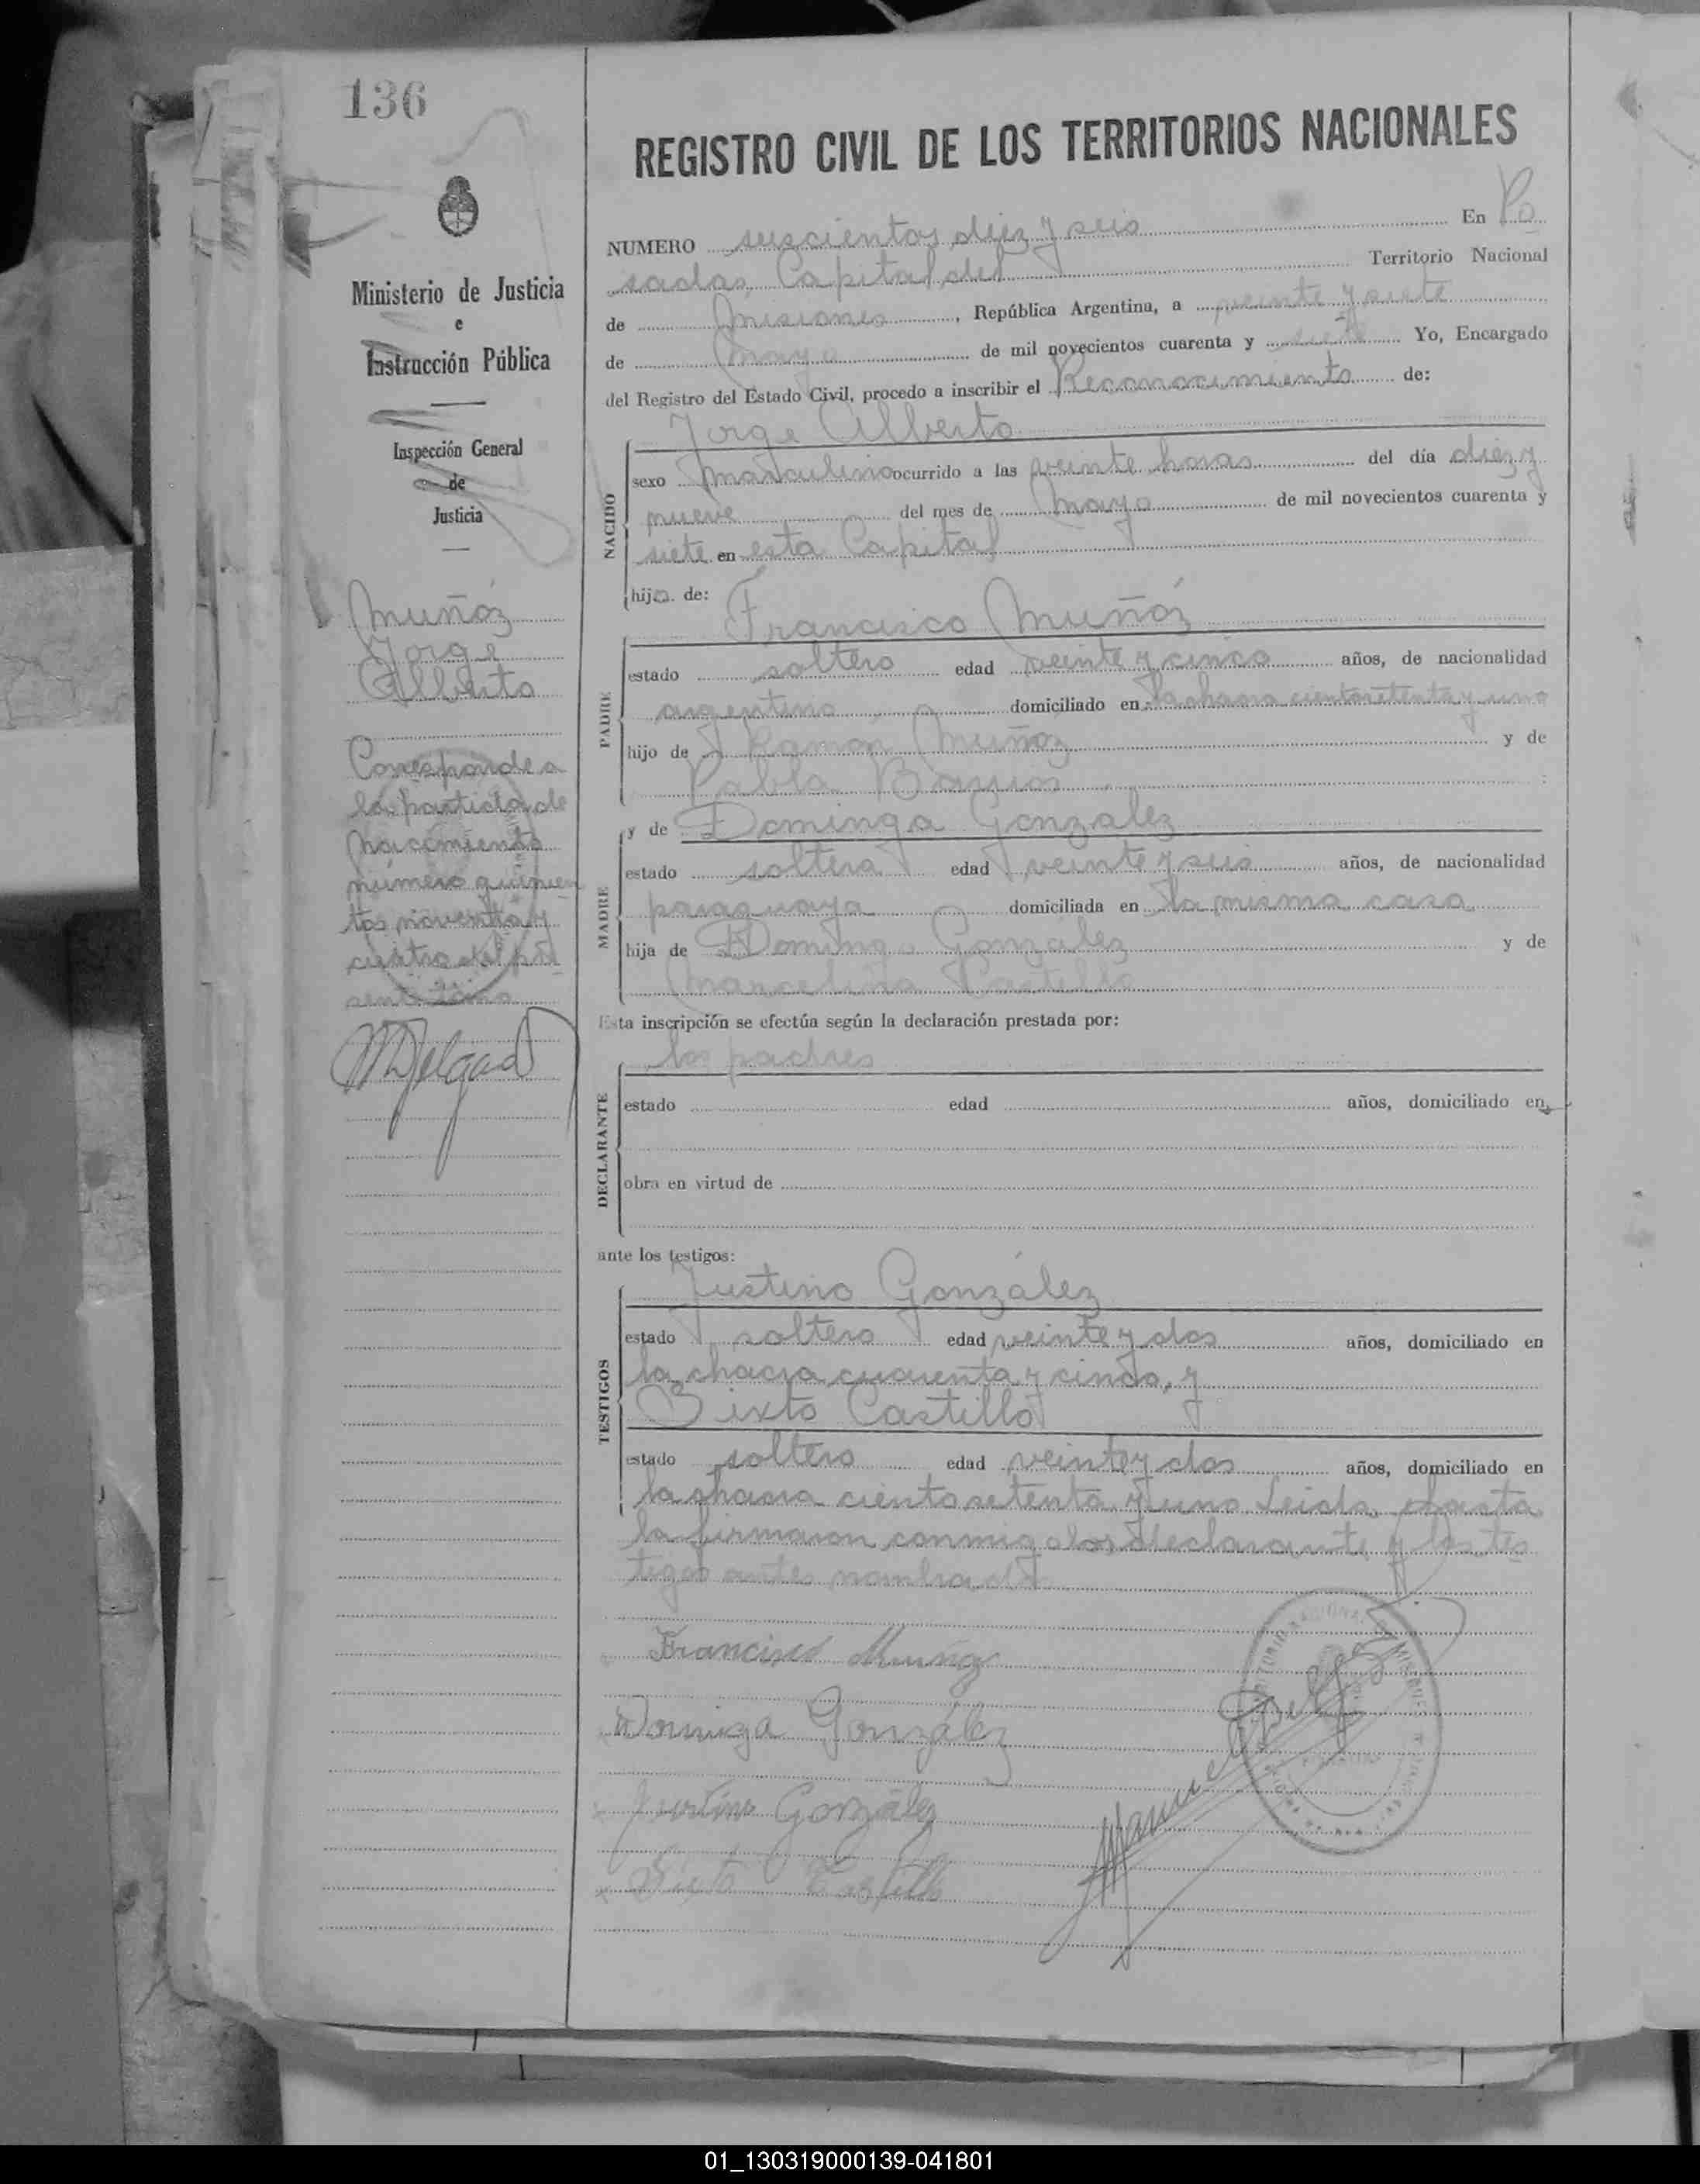 136
Ministerio de Justicia
e
Instrucción Pública
Inspección General
de
Justicia
Muñóz
Jorge
Alberto
Corresponde a
la partida de
nacimiento
número quinien
tos noventa y
cuatro del pre
sente año
MDelgado
REGISTRO CIVIL DE LOS TERRITORIOS NACIONALES
NUMERO seiscientos diez y seis En Po
sadas, Capital del Territorio Nacional
de Misiones, República Argentina, a veinte y siete
de Mayo de mil novecientos cuarenta y siete Yo, Encargado
del Registro del Estado Civil, procedo a inscribir el Reconocimiento de:
Jorge Alberto
NACIDO
sexo masculino ocurrido a las veinte horas del día diez y
nueve del mes de Mayo de mil novecientos cuarenta y
siete en esta Capital
hijo de:
Francisco Muñóz
PADRE
estado soltero edad veinte y cinco años, de nacionalidad
argentino domiciliado en la chacra ciento setenta y uno
hijo de Ramón Muñóz y de
Pabla Barrios
y de Dominga Gonzalez
MADRE
estado soltera edad veinte y seis años, de nacionalidad
paraguaya domiciliada en la misma casa
hija de Domingo Gonzalez y de
Marcelina Castillo
Esta inscripción se efectúa según la declaración prestada por:
los padres
DECLARANTE
estado edad años, domiciliado en
obra en virtud de
ante los testigos:
Justino González
TESTIGOS
estado soltero edad veinte y dos años, domiciliado en
la chacra cuarenta y cinco, y
Sixto Castillo
estado soltero edad veinte y dos años, domiciliado en
la chacra ciento setenta y uno Leida el acta
la firmaron conmigo los declarante y los tes
tigos antes nombrados
Francisco Muñoz
Dominga González
Justino González
Sixto Castillo
Manuel Delgado
01_130319000139-041801